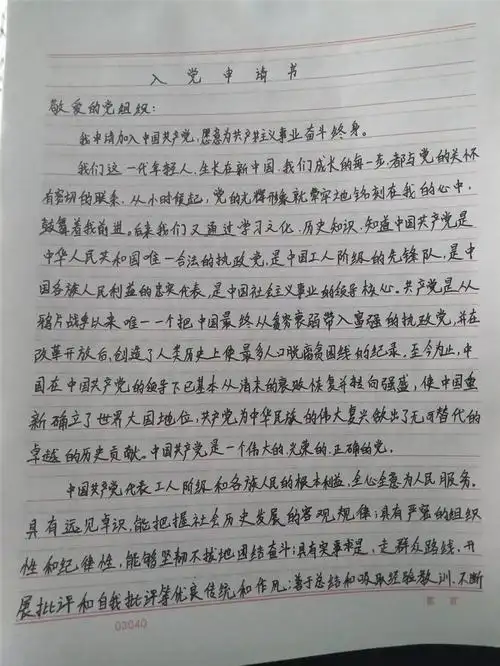 入党申请书
敬爱的党组织:
我申请加入中国共产党,愿意为共产主义事业奋斗终身。
我们这一代年轻人,生长在新中国,我们成长的每一步,都与党的关怀
有密切的联系。从小时候起,党的光辉形象就牢牢地铭刻在我的心中,
鼓舞着我前进。后来我们又通过学习文化、历史知识,知道中国共产党是
中华人民共和国唯一合法的执政党,是中国工人阶级的先锋队,是中
国各族人民利益的忠实代表,是中国社会主义事业的领导核心。共产党是从
鸦片战争以来唯一一个把中国最终从贫穷衰弱带入富强的执政党,并在
改革开放后,创造了人类历史上使最多人口脱离贫困线的纪录。至今为止,中
国在中国共产党的领导下已基本从清末的衰败恢复并转向强盛,使中国重
新确立了世界大国地位,共产党为中华民族的伟大复兴做出了无可替代的
卓越的历史贡献。中国共产党是一个伟大的、光荣的、正确的党。
中国共产党代表工人阶级和各族人民的根本利益,全心全意为人民服务。
具有远见卓识,能把握社会历史发展的客观规律;具有严密的组织
性和纪律性,能够坚韧不拔地团结奋斗;具有实事求是,走群众路线,开
展批评和自我批评等优良传统和作风;善于总结和吸取经验教训,不断
03040